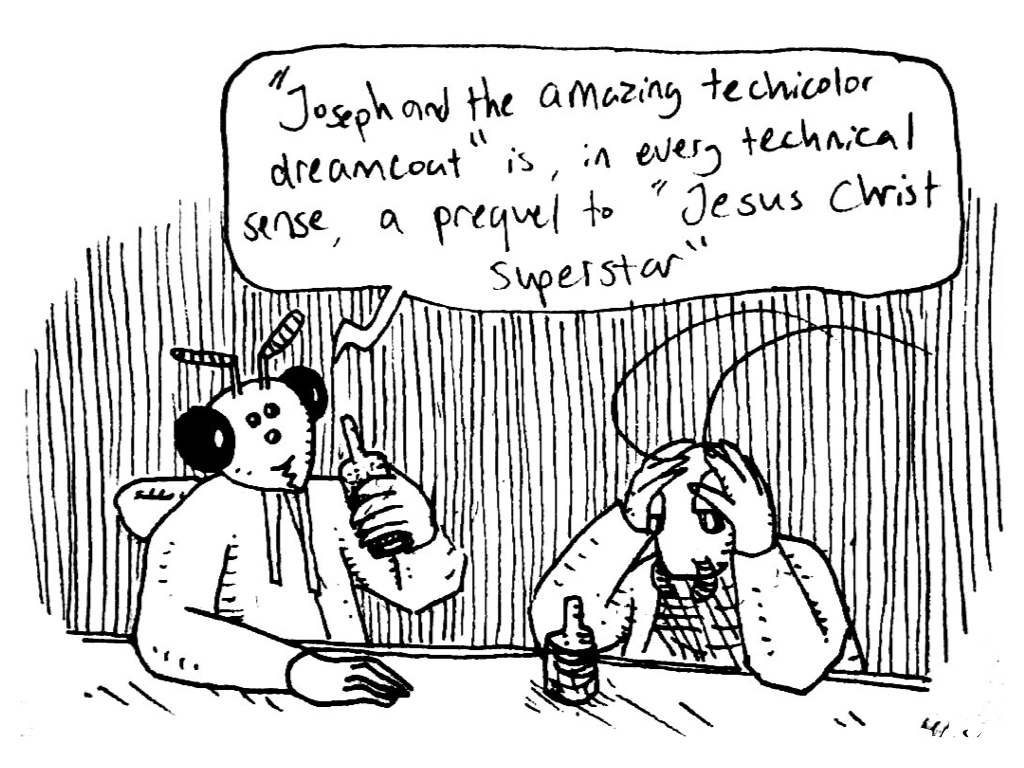 "Joseph and the amazing techicolor
dreamcout" is, in every technical
sense, a prequel to "Jesus Christ
superstar"